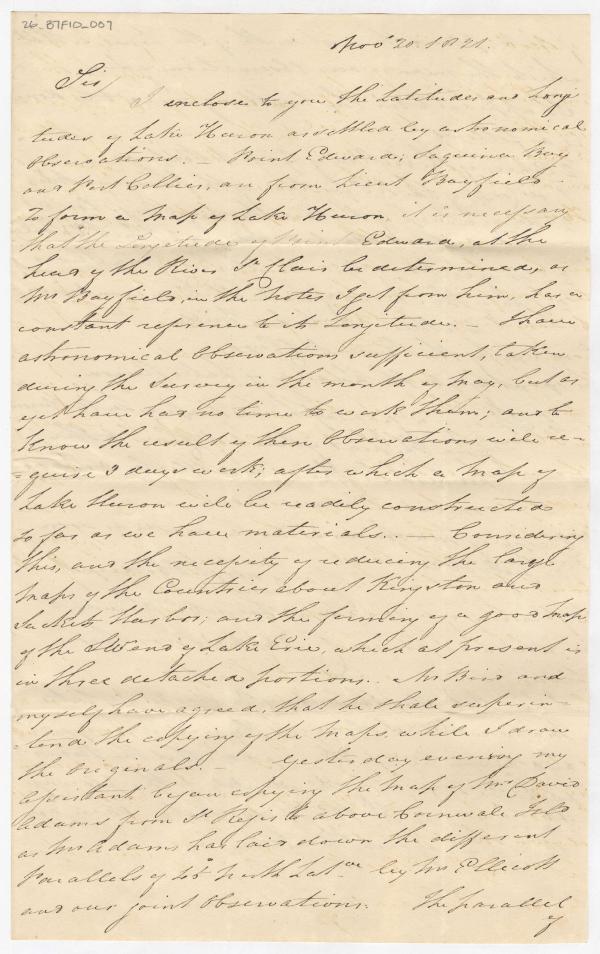 26_B7F10_007
Nov' 20. 1821.
Sir/
I enclose to you the Latitudes and Longi
tudes of Lake Huron as settled by astronomical
Observations. — Point Edward; Saguina Bay
and Port Collier, are from Lieut Bayfield.
To form a Map of Lake Huron, it is necessary
that the Longitude of Point Edward, at the
head of the River St Clair be determined, as
Mr Bayfield, in the Notes I got from him, has a
constant reference to its Longitude. — I have
astronomical Observations sufficient, taken
during the Survey in the month of May, but as
yet have had no time to work them; and to
know the result of these Observations will re-
-quire days work; after which a Map of
Lake Huron will be readily constructed
so far as we have materials. — Considering
this, and the necessity of reducing the large
Maps of the Countries about Kingston and
Sackets Harbor; and the forming of a good Map
of the SW end of Lake Erie, which at present is
in three detached portions.. Mr Bird and
myself have agreed, that he shall superin-
-tend the copying of the Maps, while I draw
the Originals. — Yesterday evening my
assistant began copying the Map of Mr David
Adams from St Regis to above Cornwall Isld
as Mr Adams has laid down the different
Parallels of 45° North Lat by Mr Ellicott
and our joint Observations. The parallel
of